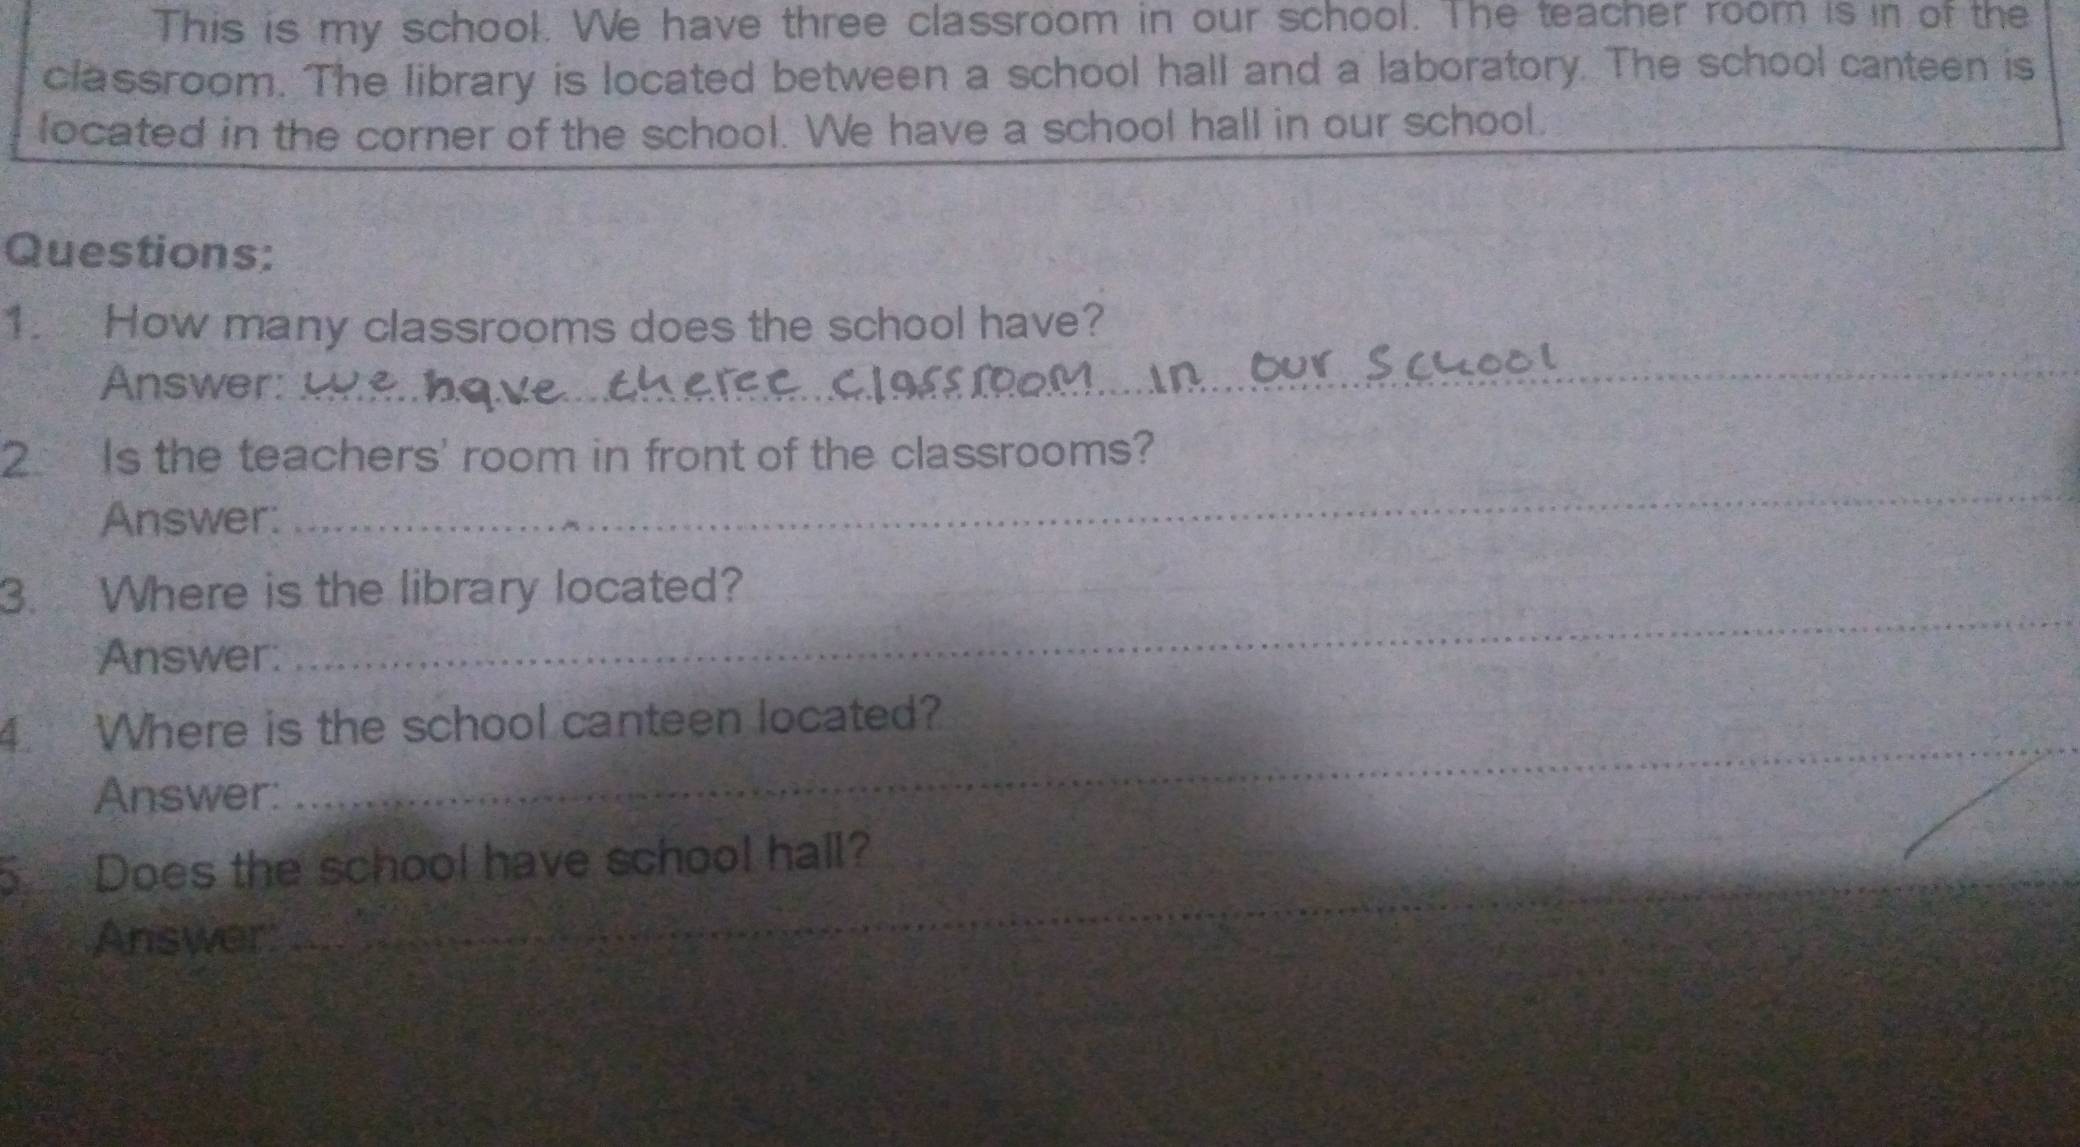 This is my school. We have three classroom in our school. The teacher room is in of the
classroom. The library is located between a school hall and a laboratory. The school canteen is
located in the corner of the school. We have a school hall in our school.
Questions:
1. How many classrooms does the school have?
Answer: we have theree classroom in our school
2. Is the teachers' room in front of the classrooms?
Answer: ..........
3. Where is the library located?
Answer: ..........
4. Where is the school canteen located?
Answer: ..........
5. Does the school have school hall?
Answer: ..........